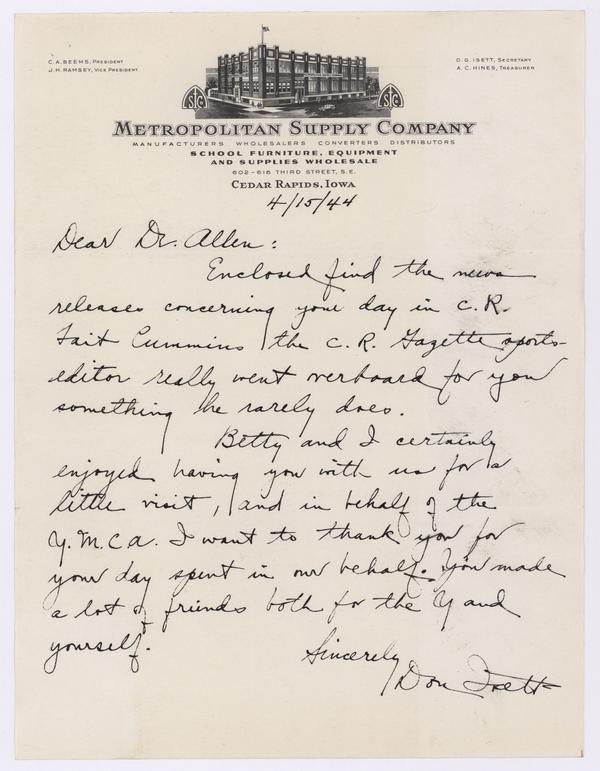 C.A. BEEMS, PRESIDENT
J.H. RAMSEY, VICE PRESIDENT
D.G. ISETT, SECRETARY
A.C. HINES, TREASURER
METROPOLITAN SUPPLY COMPANY
MANUFACTURERS WHOLESALERS CONVERTERS DISTRIBUTORS
SCHOOL FURNITURE, EQUIPMENT
AND SUPPLIES WHOLESALE
602-616 THIRD STREET, S.E.
CEDAR RAPIDS, IOWA
4/15/44
Dear Dr. Allen:
Enclosed find the news
releases concerning your day in C.R.
Tait Cummins the C.R. Gazette sports-
editor really went overboard for you
something he rarely does.
Betty and I certainly
enjoyed having you with us for a
little visit, and in behalf of the
Y.M.C.A. I want to thank you for
your day spent in our behalf. You made
a lot of friends both for the Y and
yourself.
Sincerely
Don Isett